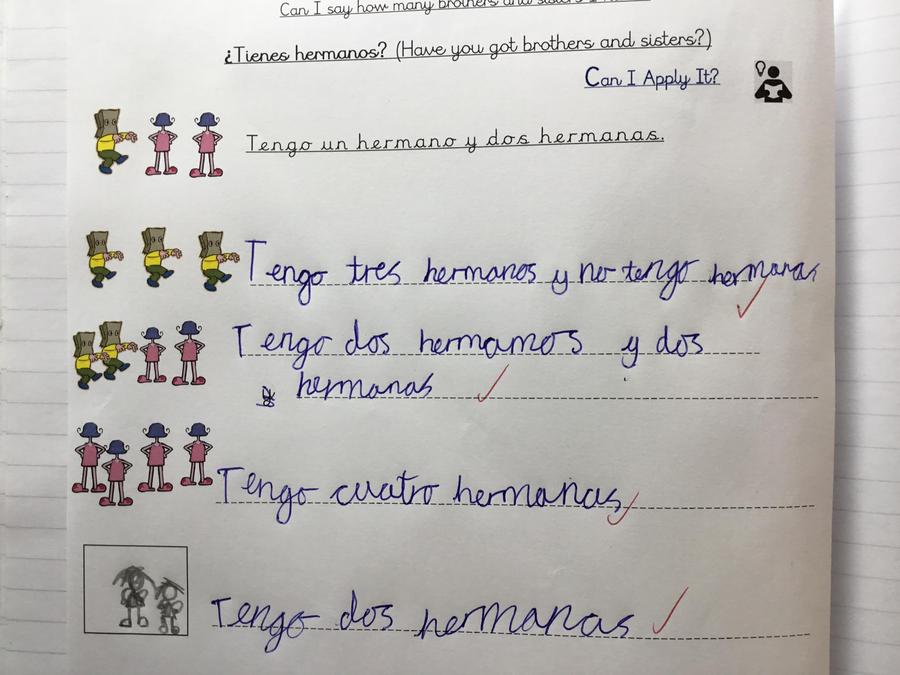 Can I say how many brothers and sisters I
¿Tienes hermanos? (Have you got brothers and sisters?)
Can I Apply It?
Tengo un hermano y dos hermanas.
Tengo tres hermanos y no tengo hermanas
Tengo dos hermamos y dos
hermanas
Tengo cuatro hermanas
Tengo dos hermanas